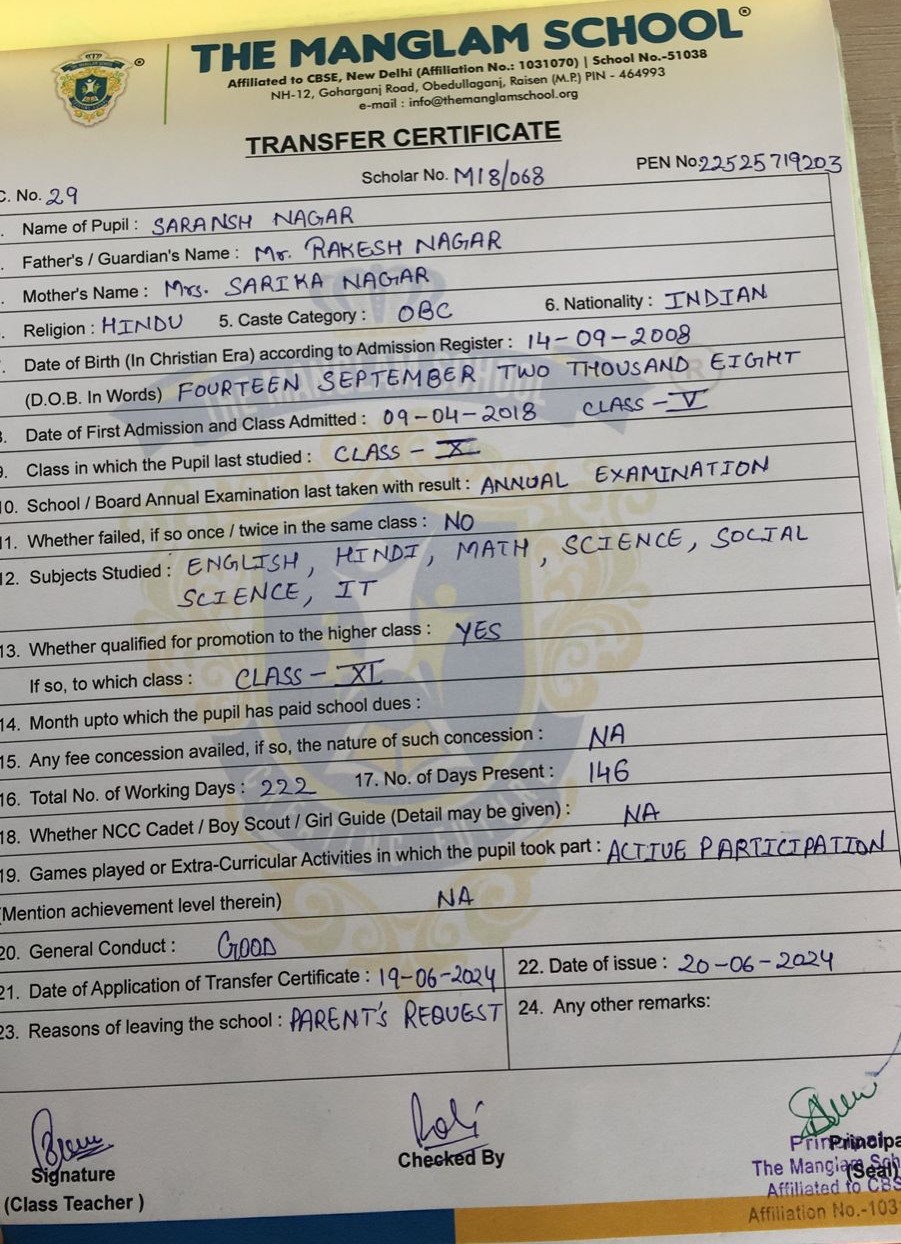 THE MANGLAM SCHOOL®
Affiliated to CBSE, New Delhi (Affiliation No.: 1031070) | School No.-51038
NH-12, Goharganj Road, Obedullaganj, Raisen (M.P.) PIN - 464993
e-mail : info@themanglamschool.org
TRANSFER CERTIFICATE
C. No. 29 Scholar No. M18/068 PEN No. 22525719203
. Name of Pupil : SARANSH NAGAR
. Father's / Guardian's Name : Mr. RAKESH NAGAR
. Mother's Name : Mrs. SARIKA NAGAR
. Religion : HINDU 5. Caste Category : OBC 6. Nationality : INDIAN
. Date of Birth (In Christian Era) according to Admission Register : 14-09-2008
(D.O.B. In Words) FOURTEEN SEPTEMBER TWO THOUSAND EIGHT
8. Date of First Admission and Class Admitted : 09-04-2018 CLASS - V
9. Class in which the Pupil last studied : CLASS - X
10. School / Board Annual Examination last taken with result : ANNUAL EXAMINATION
11. Whether failed, if so once / twice in the same class : NO
12. Subjects Studied : ENGLISH, HINDI, MATH, SCIENCE, SOCIAL
SCIENCE, IT
13. Whether qualified for promotion to the higher class : YES
If so, to which class : CLASS - XI
14. Month upto which the pupil has paid school dues :
15. Any fee concession availed, if so, the nature of such concession : NA
16. Total No. of Working Days : 222 17. No. of Days Present : 146
18. Whether NCC Cadet / Boy Scout / Girl Guide (Detail may be given) : NA
19. Games played or Extra-Curricular Activities in which the pupil took part : ACTIVE PARTICIPATION
(Mention achievement level therein) NA
20. General Conduct : GOOD
21. Date of Application of Transfer Certificate : 19-06-2024 22. Date of issue : 20-06-2024
23. Reasons of leaving the school : PARENT'S REQUEST 24. Any other remarks:
Signature
(Class Teacher )
Checked By
Principa
(Seal)
The Manglam Sch
Affiliated to CBS
Affiliation No.-103